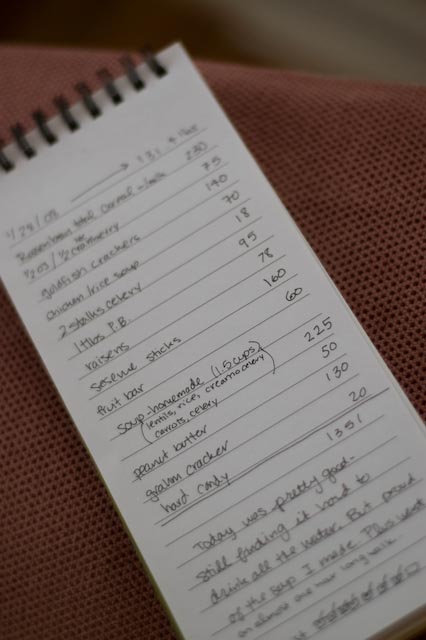 1/28/08 → 131.4 lbs
total cereal - 230
1/2 oz / 1/2 c 75
goldfish crackers 140
chicken rice soup 70
2 stalks celery 18
1 tbs P.B. 95
raisens 78
seseme sticks 160
fruit bar 60
soup-homemade (1.5 cups) 225
(lentils, rice, cream o celery
carrots, celery)
peanut butter 50
graham cracker 130
hard candy 20
1351
Today was pretty good-
still finding it hard to
drink all the water. But proud
of the soup I made. Plus went
on almost one hour long walk.